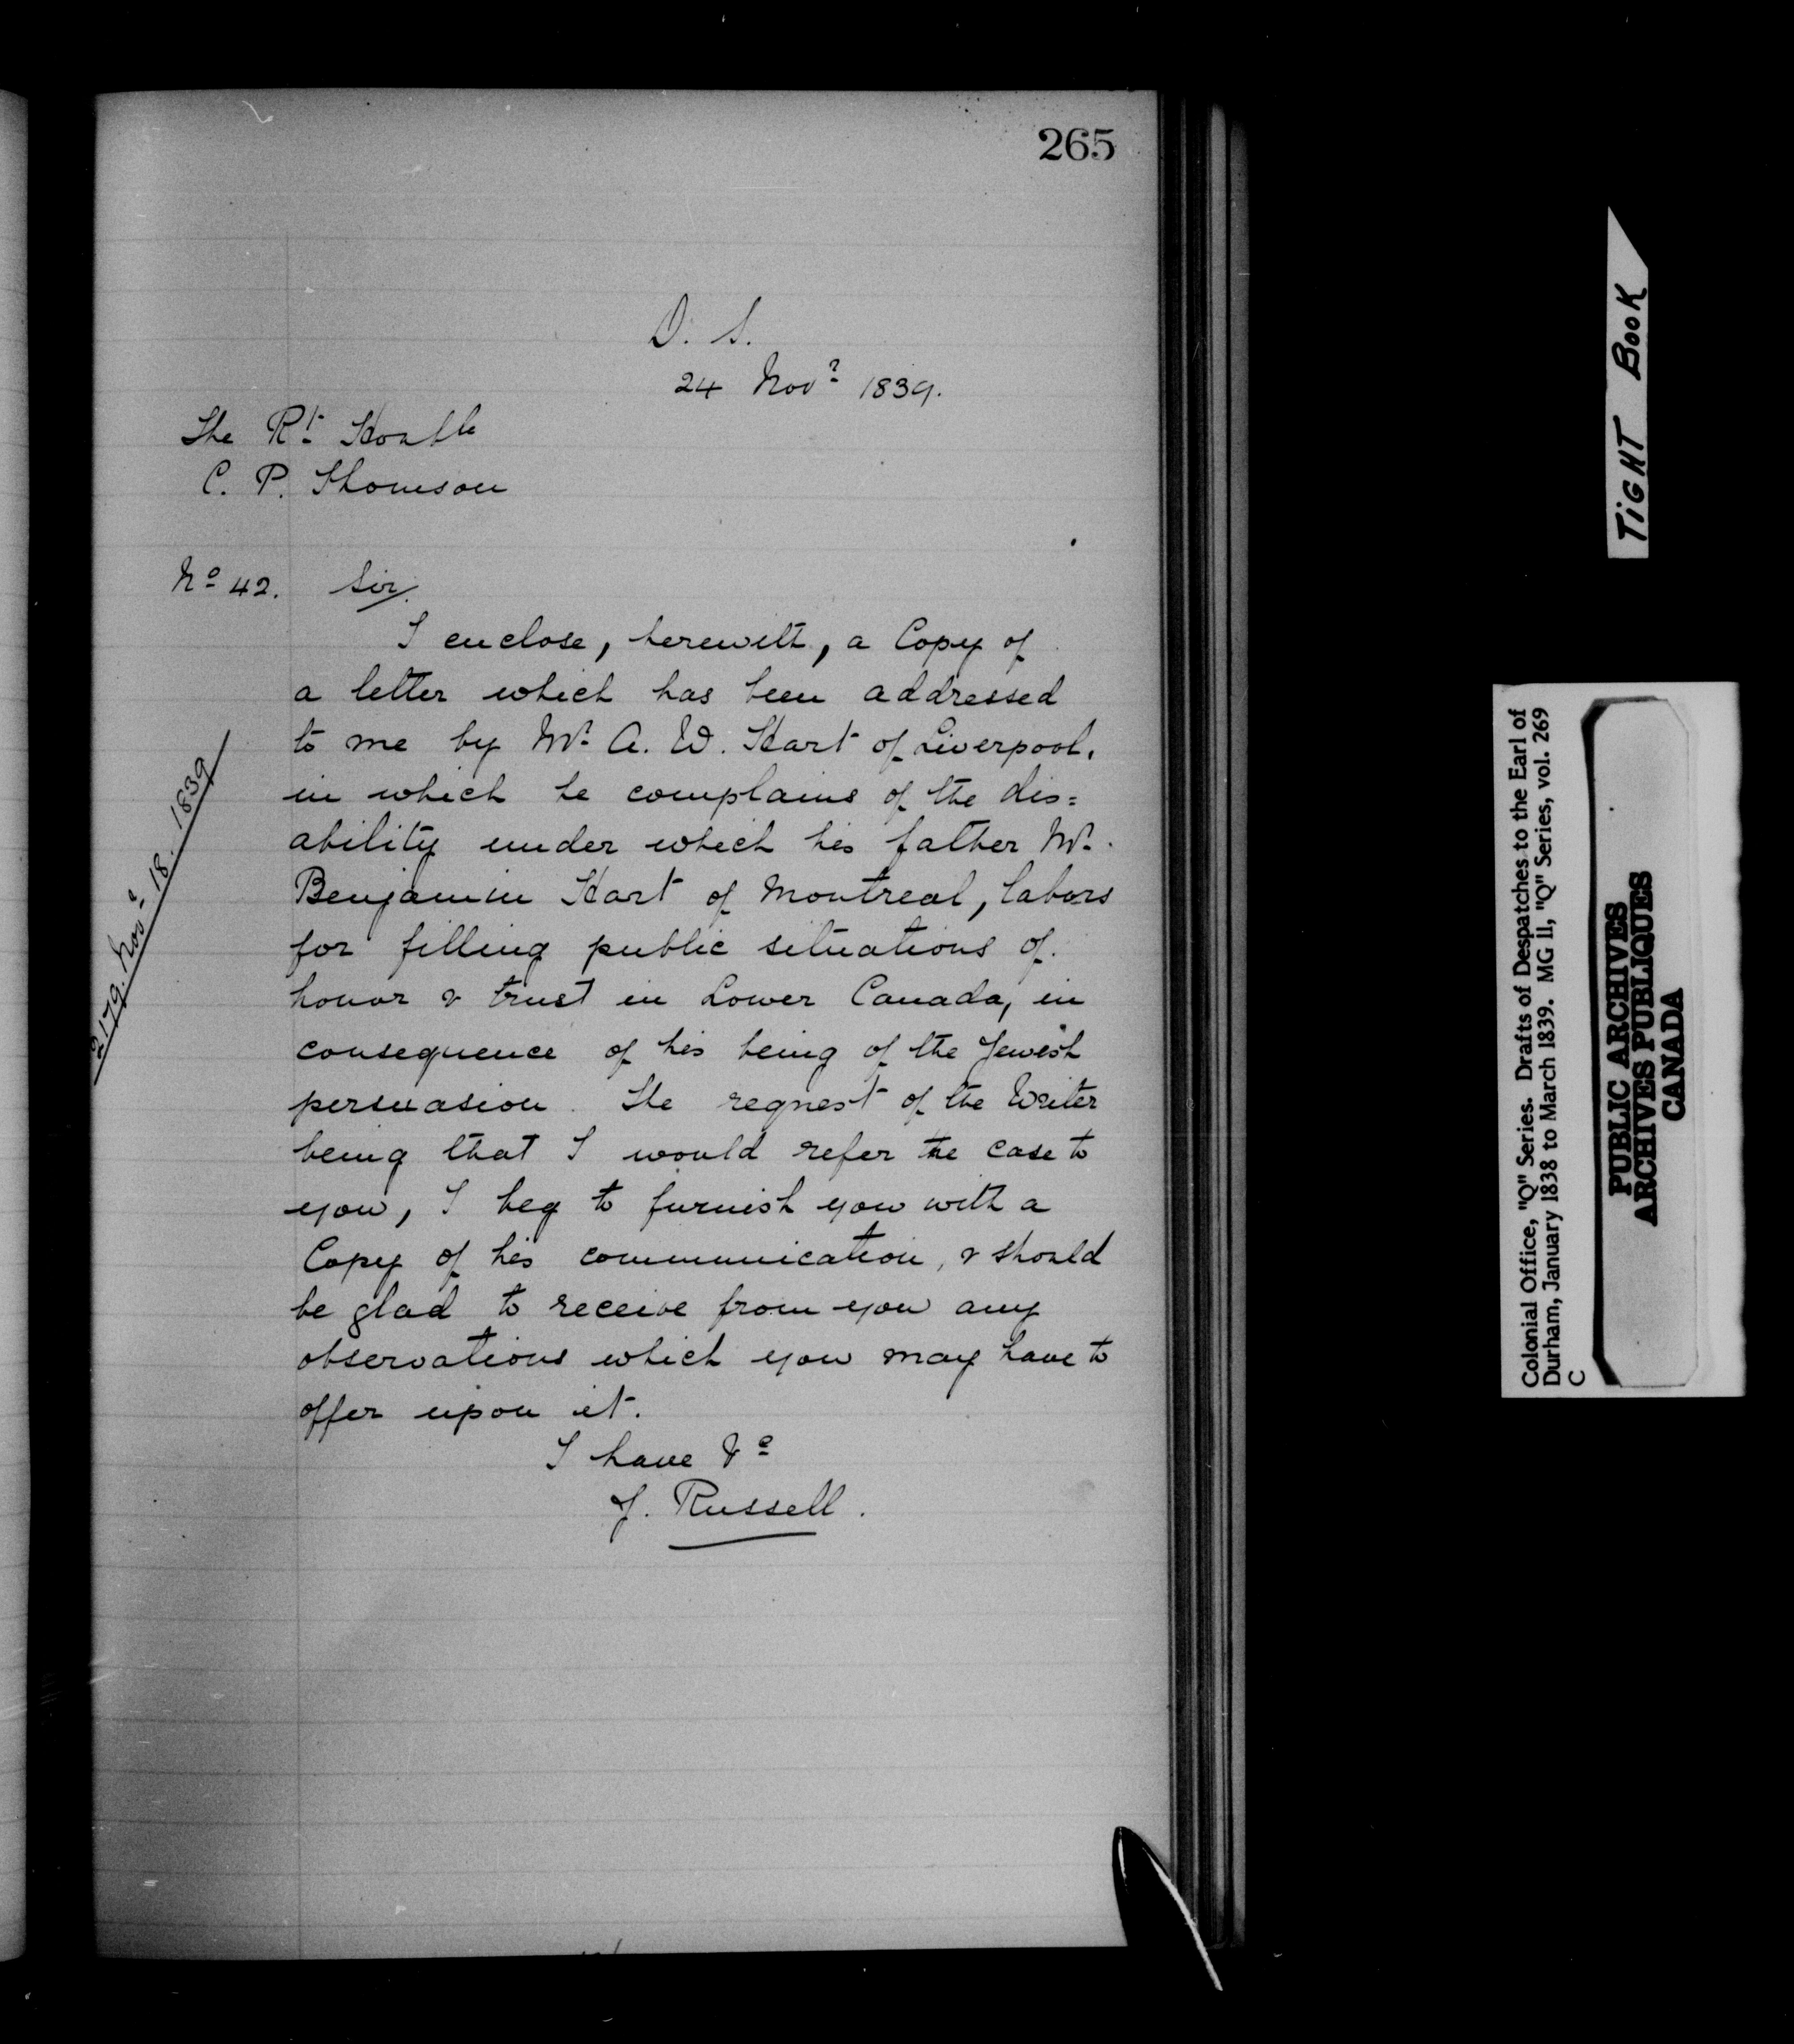 265
D. S.
24 Novr 1839.
The Rt. Honble
C. P. Thomson
No 42. Sir,
I enclose, herewith, a Copy of
a letter which has been addressed
to me by Mr. A. W. Hart of Liverpool,
in which he complains of the dis=
ability under which his father Mr.
Benjamin Hart of Montreal, labors
for filling public situations of
honor & trust in Lower Canada, in
consequence of his being of the Jewish
persuasion. The request of the Writer
being that I would refer the case to
you, I beg to furnish you with a
Copy of his communication, & should
be glad to receive from you any
observations which you may have to
offer upon it.
I have &c
J. Russell.
2179. Novr. 18. 1839
TIGHT BOOK
Colonial Office, "Q" Series. Drafts of Despatches to the Earl of
Durham, January 1838 to March 1839. MG 11, "Q" Series, vol. 269
C
PUBLIC ARCHIVES
ARCHIVES PUBLIQUES
CANADA